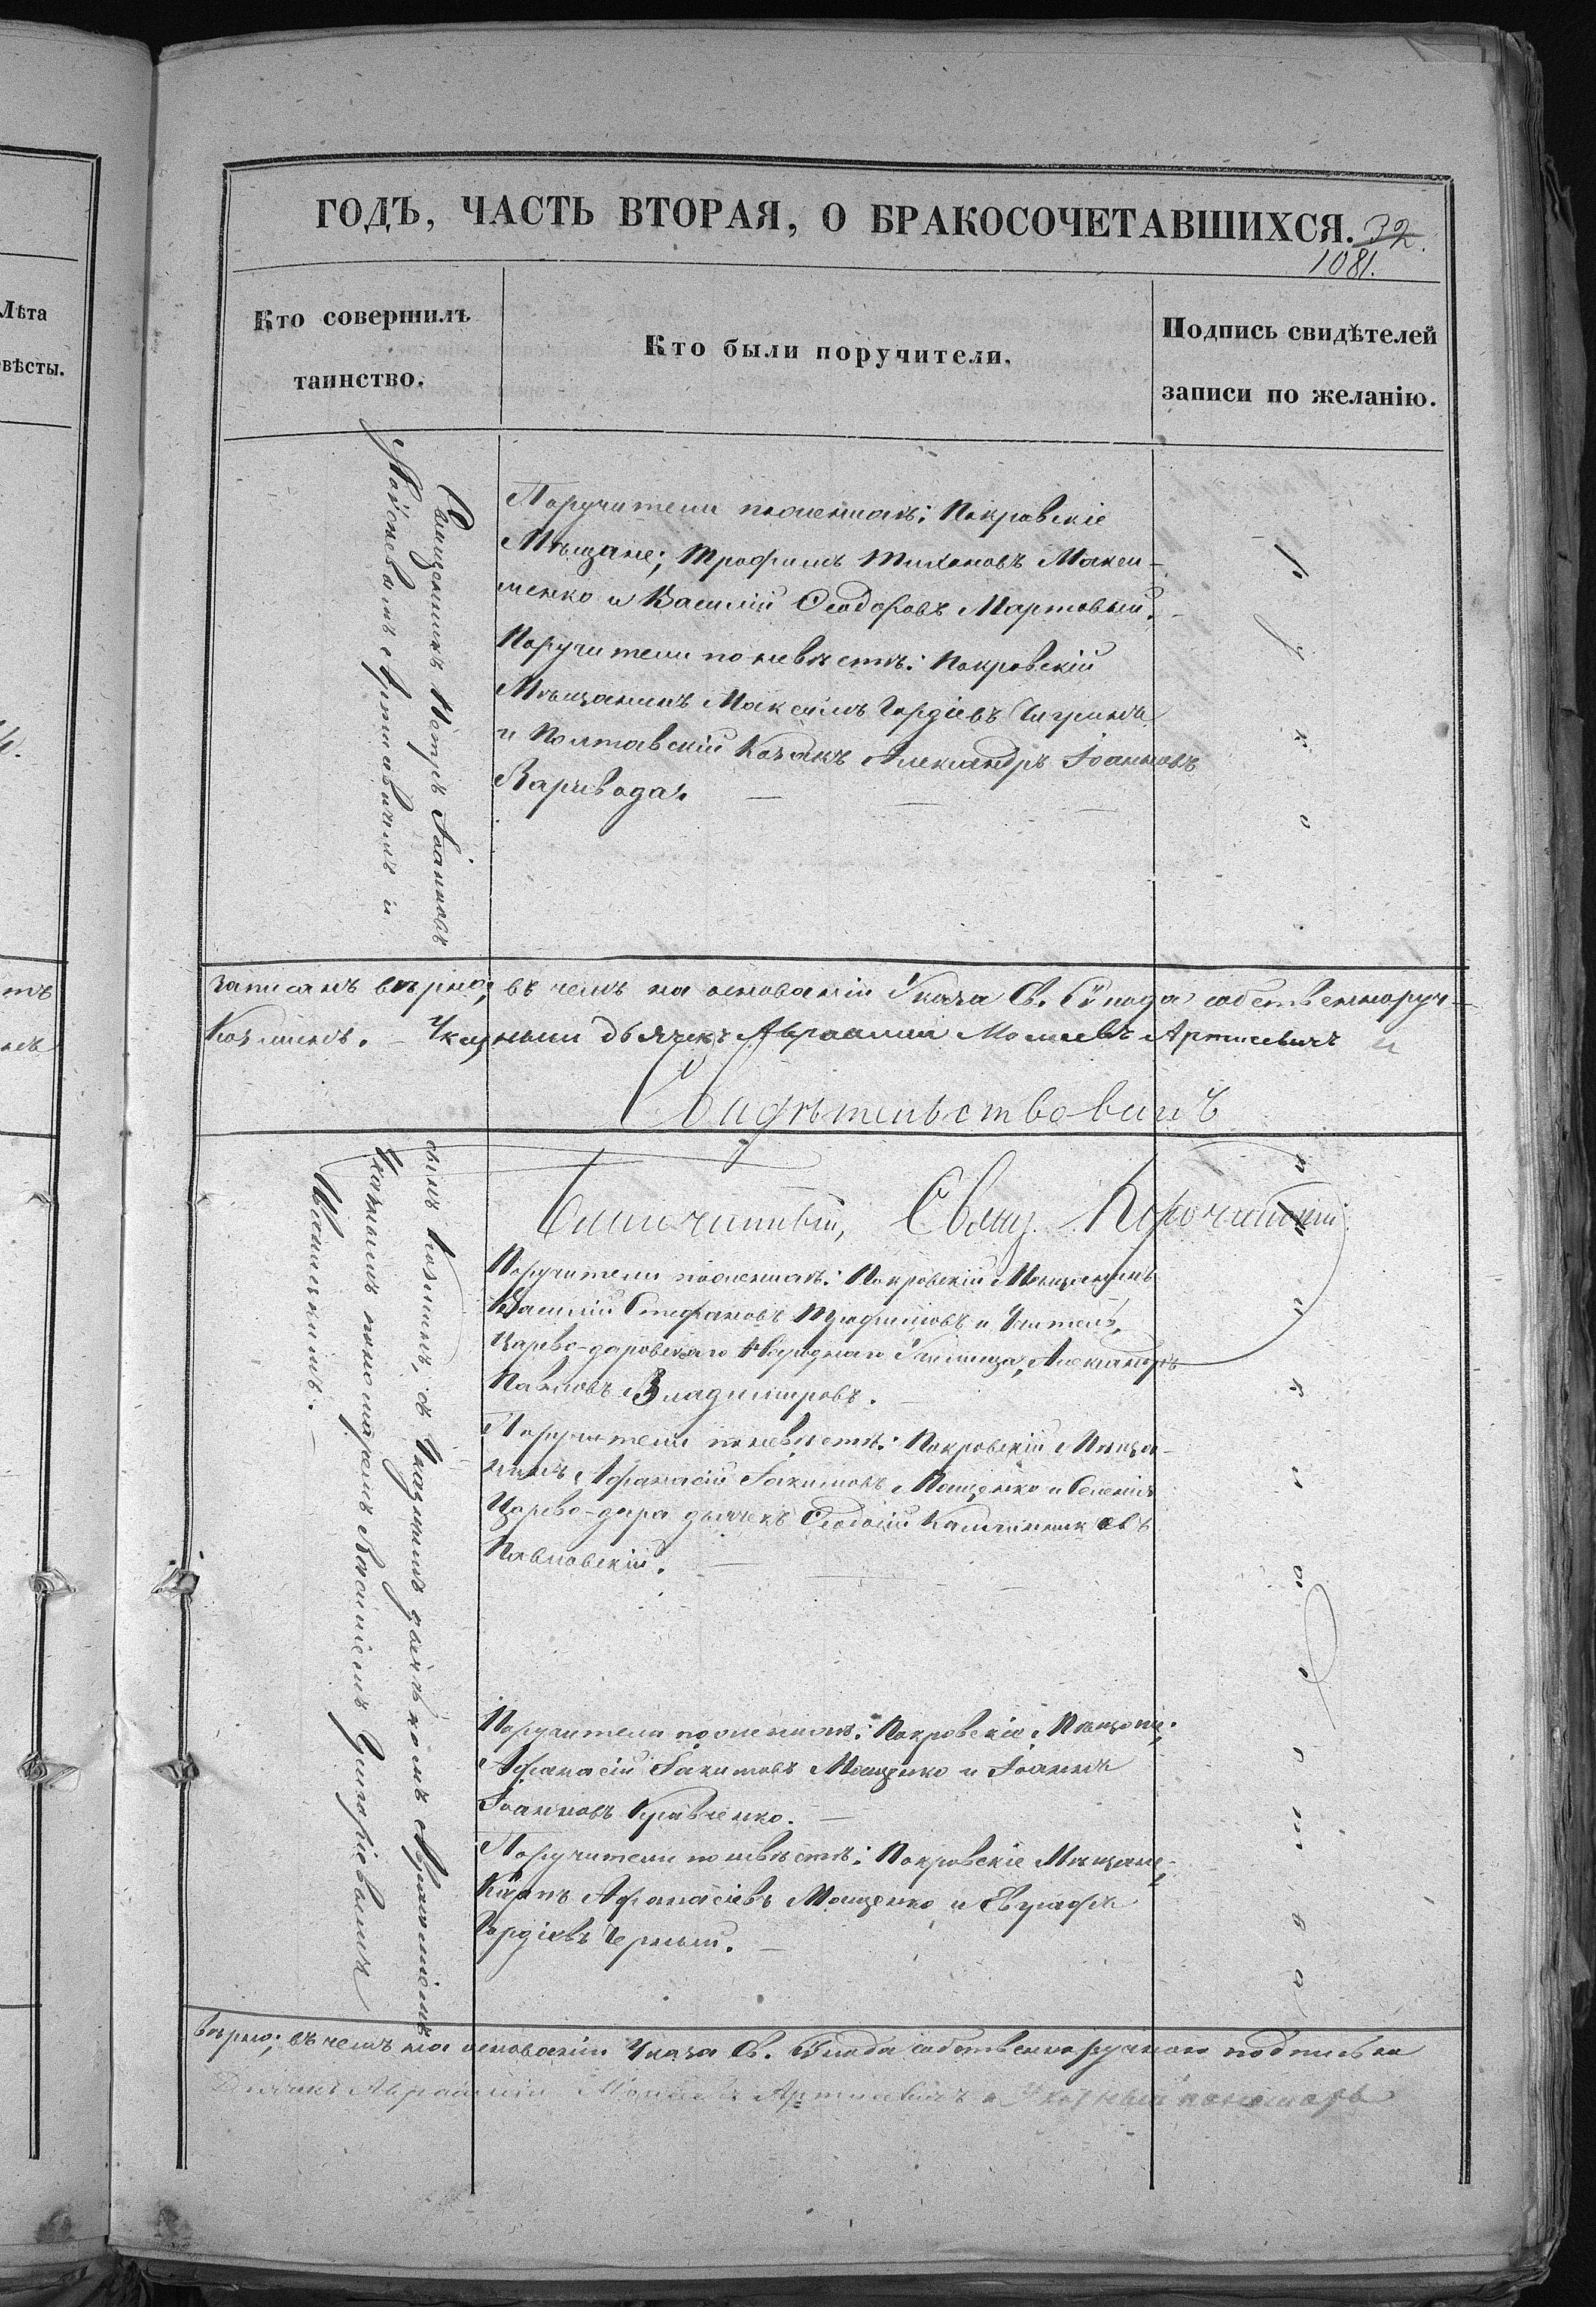 Лѣта
вѣсты.
ГОДЪ, ЧАСТЬ ВТОРАЯ, О БРАКОСОЧЕТАВШИХСЯ.
32.
1081.
Кто совершилъ
таинство.
Кто были поручители.
Подпись свидѣтелей
записи по желанію.
Священникъ Петръ Іоанновъ
Поручители по женихѣ: Покровскіе
Мѣщане; Трофимъ Тихоновъ Макси-
менко и Василій Ѳеодоровъ Мартовый.
Поручители по невѣстѣ: Покровскій
Мѣщанинъ Максимъ Гордіевъ
и Полтавскій Козакъ Александръ Іоанновъ
Варивода.
записанъ вѣрно; въ чемъ на основаніи Указа Св. Сѵнода собственноруч-
Козминъ. Указный дьячекъ Авраамій Моисеевъ Артисевичъ и
Свидѣтельствовалъ
Благочинный, Свящ.
овымъ Козминъ, съ Указнымъ дьячкомъ Авраамиемъ
Указнымъ пономаремъ Василіемъ Григоріевымъ
Поручители по женихѣ: Покровскій Мѣщанинъ
Василій Стефановъ Трофимовъ и Учитель
Царево-даровскаго Народнаго Училища, Александръ
Павловъ Владиміровъ.
Поручители по невѣстѣ: Покровскій Мѣща-
нинъ Афанасій Іакимовъ Мощенко и Селенія
Царево-дара дьячекъ Ѳеодосій
Павловскій.
Поручители по женихѣ: Покровскіе Мѣщане;
Афанасій Іакимовъ Мощенко и Іоаннъ
Іоанновъ Кравченко.
Поручители по невѣстѣ: Покровскіе Мѣщане;
Карпъ Афанасіевъ Мощенко и Евграфъ
Гордіевъ Черный.
вѣрно; въ чемъ на основаніи Указа Св. Сѵнода собственноручною подписью
Дьячекъ Авраамій Моисеевъ Артисевичъ и Указный пономарь